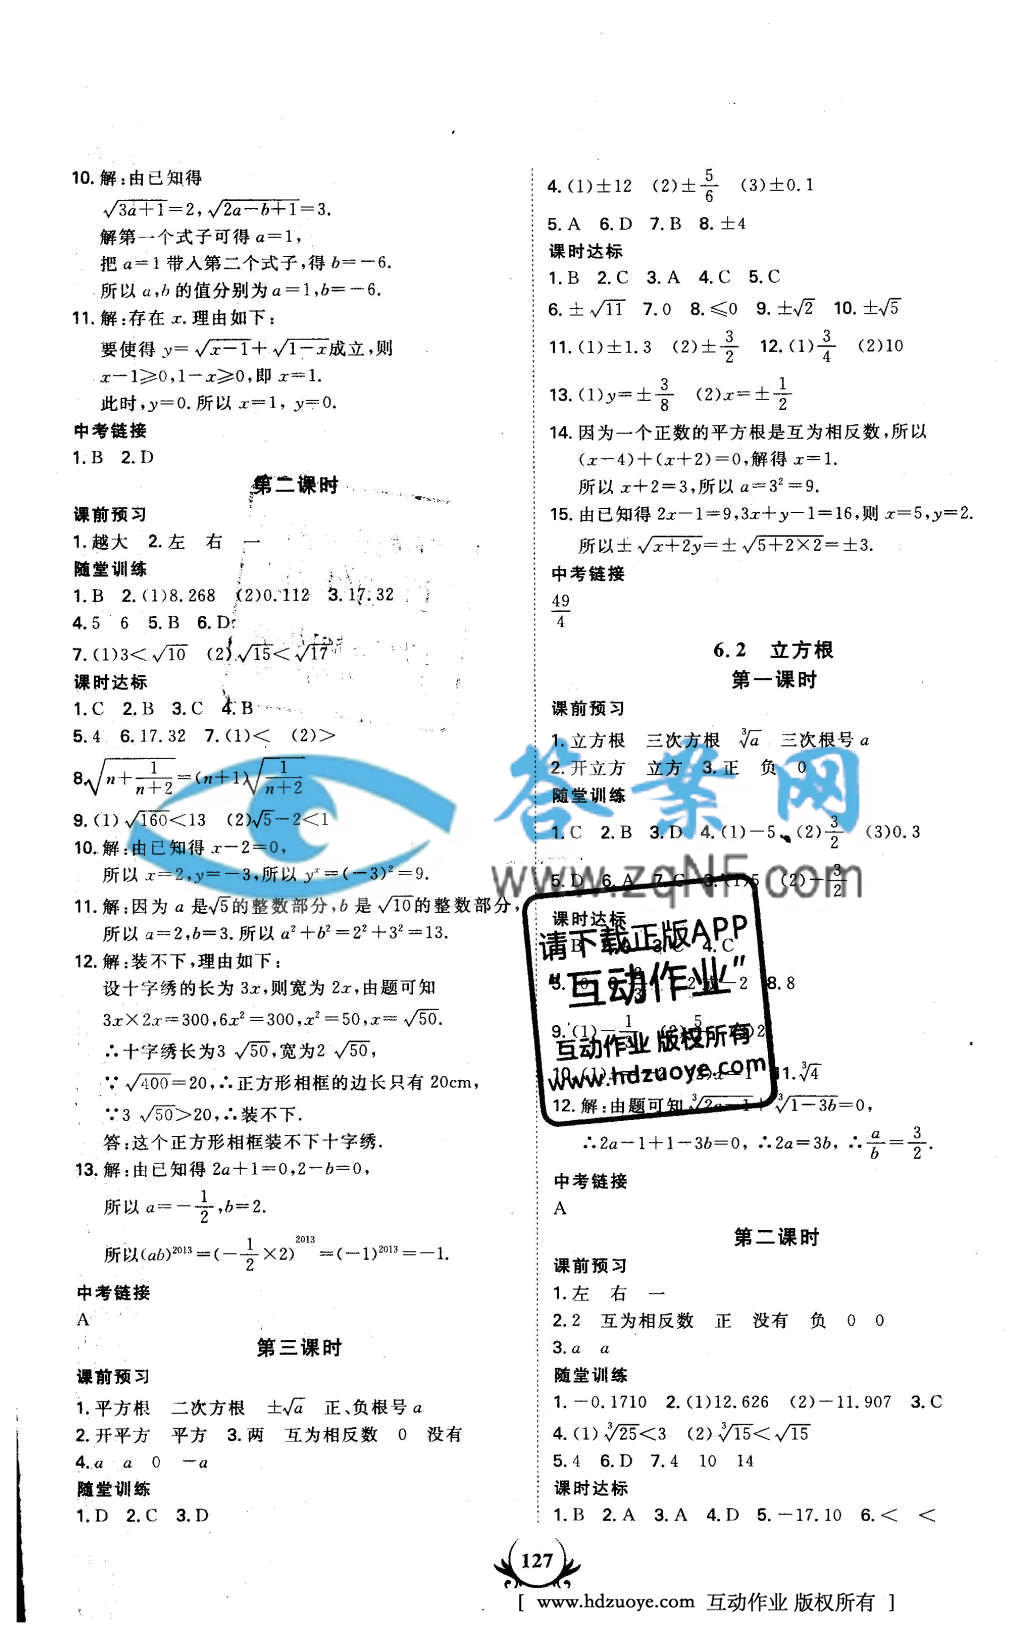 10. 解:由已知得
√3a+1=2,√2a-b+1=3.
解第一个式子可得 a=1,
把 a=1 带入第二个式子,得 b=-6.
所以 a,b 的值分别为 a=1,b=-6.
11. 解:存在 x.理由如下:
要使得 y=√x-1+√1-x成立,则
x-1≥0,1-x≥0,即 x=1.
此时,y=0.所以 x=1, y=0.
中考链接
1. B 2. D
第二课时
课前预习
1. 越大 2. 左 右 一
随堂训练
1. B 2. (1)8.268 (2)0.112 3. 17.32
4. 5 6 5. B 6. D
7. (1)3<√10 (2)√15<√17
课时达标
1. C 2. B 3. C 4. B
5. 4 6. 17.32 7. (1)< (2)>
8. √(n+1/(n+2))=(n+1)√(1/(n+2))
9. (1)√160<13 (2)√5-2<1
10. 解:由已知得 x-2=0,
所以 x=2,y=-3,所以 yˣ=(-3)²=9.
11. 解:因为 a 是√5的整数部分,b 是√10的整数部分,
所以 a=2,b=3.所以 a²+b²=2²+3²=13.
12. 解:装不下,理由如下:
设十字绣的长为 3x,则宽为 2x,由题可知
3x×2x=300,6x²=300,x²=50,x=√50.
∴十字绣长为3√50,宽为2√50,
∵√400=20,∴正方形相框的边长只有 20cm,
∵3√50>20,∴装不下.
答:这个正方形相框装不下十字绣.
13. 解:由已知得 2a+1=0,2-b=0,
所以 a=-1/2,b=2.
所以(ab)²⁰¹³=(-1/2×2)²⁰¹³=(-1)²⁰¹³=-1.
中考链接
A
第三课时
课前预习
1. 平方根 二次方根 ±√a 正、负根号 a
2. 开平方 平方 3. 两 互为相反数 0 没有
4. a a 0 -a
随堂训练
1. D 2. C 3. D
4. (1)±12 (2)±5/6 (3)±0.1
5. A 6. D 7. B 8. ±4
课时达标
1. B 2. C 3. A 4. C 5. C
6. ±√11 7. 0 8. ≤0 9. ±√2 10. ±√5
11. (1)±1.3 (2)±3/2 12. (1)3/4 (2)10
13. (1)y=±3/8 (2)x=±1/2
14. 因为一个正数的平方根是互为相反数,所以
(x-4)+(x+2)=0,解得 x=1.
所以 x+2=3,所以 a=3²=9.
15. 由已知得 2x-1=9,3x+y-1=16,则 x=5,y=2.
所以±√x+2y=±√5+2×2=±3.
中考链接
49/4
6.2 立方根
第一课时
课前预习
1. 立方根 三次方根 ³√a 三次根号 a
2. 开立方 立方 3. 正 负 0
随堂训练
1. C 2. B 3. D 4. (1)-5 (2)3/2 (3)0.3
5. D 6. A 7. C 8. (1)5 (2)-3/2
课时达标
B 3. C 4. C
-2 8. 8
9. (1)-1/3
(2)x-1 11. ³√4
12. 解:由题可知 ³√2a-1+³√1-3b=0,
∴2a-1+1-3b=0, ∴2a=3b, ∴a/b=3/2.
中考链接
A
第二课时
课前预习
1. 左 右 一
2. 2 互为相反数 正 没有 负 0 0
3. a a
随堂训练
1. -0.1710 2. (1)12.626 (2)-11.907 3. C
4. (1)³√25<3 (2)³√15<√15
5. 4 6. D 7. 4 10 14
课时达标
1. B 2. A 3. A 4. D 5. -17.10 6. < <
答案网
www.zqNF.com
请下载正版APP
"互动作业"
互动作业 版权所有
www.hdzuoye.com
127
[ www.hdzuoye.com 互动作业 版权所有 ]